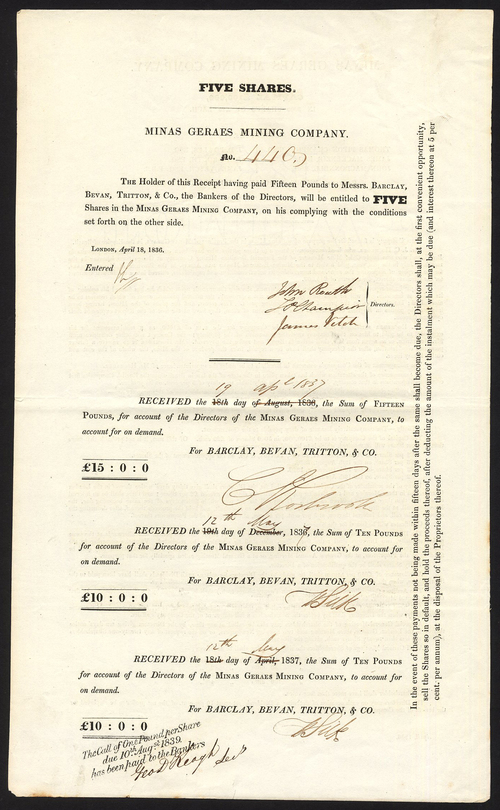 FIVE SHARES.
MINAS GERAES MINING COMPANY.
No.
THE Holder of this Receipt having paid Fifteen Pounds to Messrs. BARCLAY,
BEVAN, TRITTON, & Co., the Bankers of the Directors, will be entitled to FIVE
Shares in the MINAS GERAES MINING COMPANY, on his complying with the conditions
set forth on the other side.
LONDON, April 18, 1836.
Entered
John Routh
James Vetch
Directors.
19 Apl 1837
RECEIVED the 18th day of August, 1836, the Sum of FIFTEEN
POUNDS, for account of the Directors of the MINAS GERAES MINING COMPANY, to
account for on demand.
For BARCLAY, BEVAN, TRITTON, & CO.
£15 : 0 : 0
12th May
RECEIVED the 19th day of December, 1837, the Sum of TEN POUNDS
for account of the Directors of the MINAS GERAES MINING COMPANY, to account for
on demand.
For BARCLAY, BEVAN, TRITTON, & CO.
£10 : 0 : 0
12th May
RECEIVED the 18th day of April, 1837, the Sum of TEN POUNDS
for account of the Directors of the MINAS GERAES MINING COMPANY, to account for
on demand.
For BARCLAY, BEVAN, TRITTON, & CO.
£10 : 0 : 0
The Call of One Pound per Share
due 10th Augst 1839.
has been paid to the Bankers
Geo D Keogh Sec
In the event of these payments not being made within fifteen days after the same shall become due, the Directors shall, at the first convenient opportunity,
sell the Shares so in default, and hold the proceeds thereof, after deducting the amount of the instalment which may be due (and interest thereon at 5 per
cent. per annum), at the disposal of the Proprietors thereof.